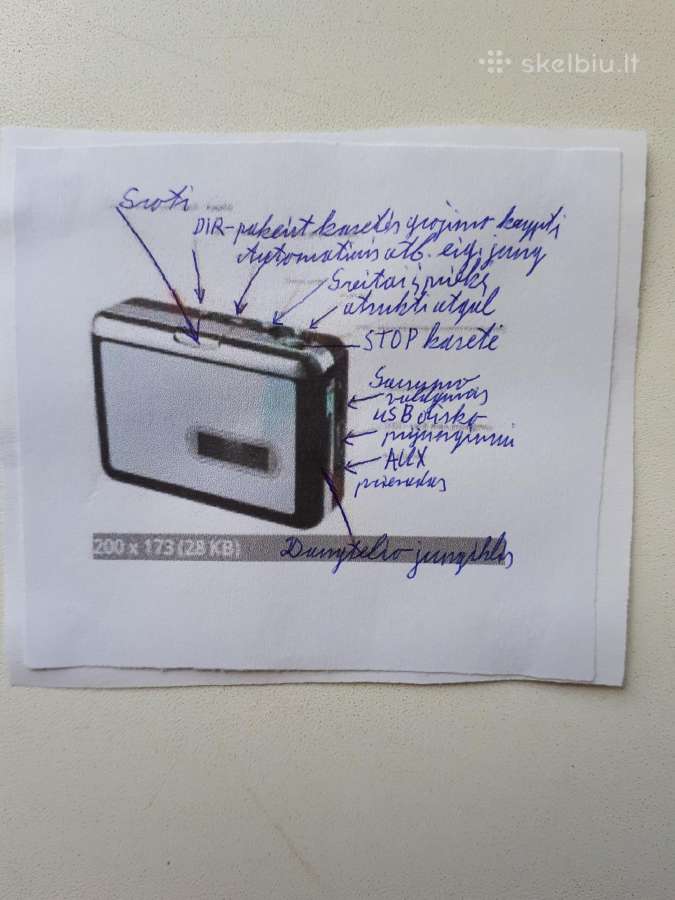 skelbiu.lt
Groti
DIR-pakeist kasetės grojimo kryptį
Automatinis atb. eig. jung
Greitai į priekį
atsukti atgal
STOP kasetė
Garsumo
valdymas
USB disko
AUX
200 x 173 (28 KB)